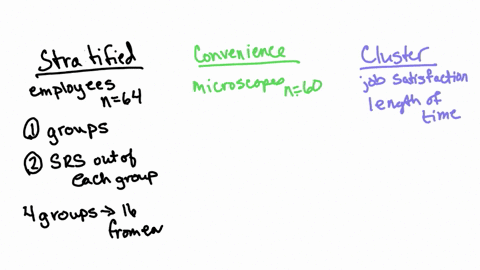 Stratified
employees
n=64
① groups
② SRS out of
each group
4 groups → 16
from ea
Convenience
microscopes n=60
Cluster
job satisfaction
length of
time